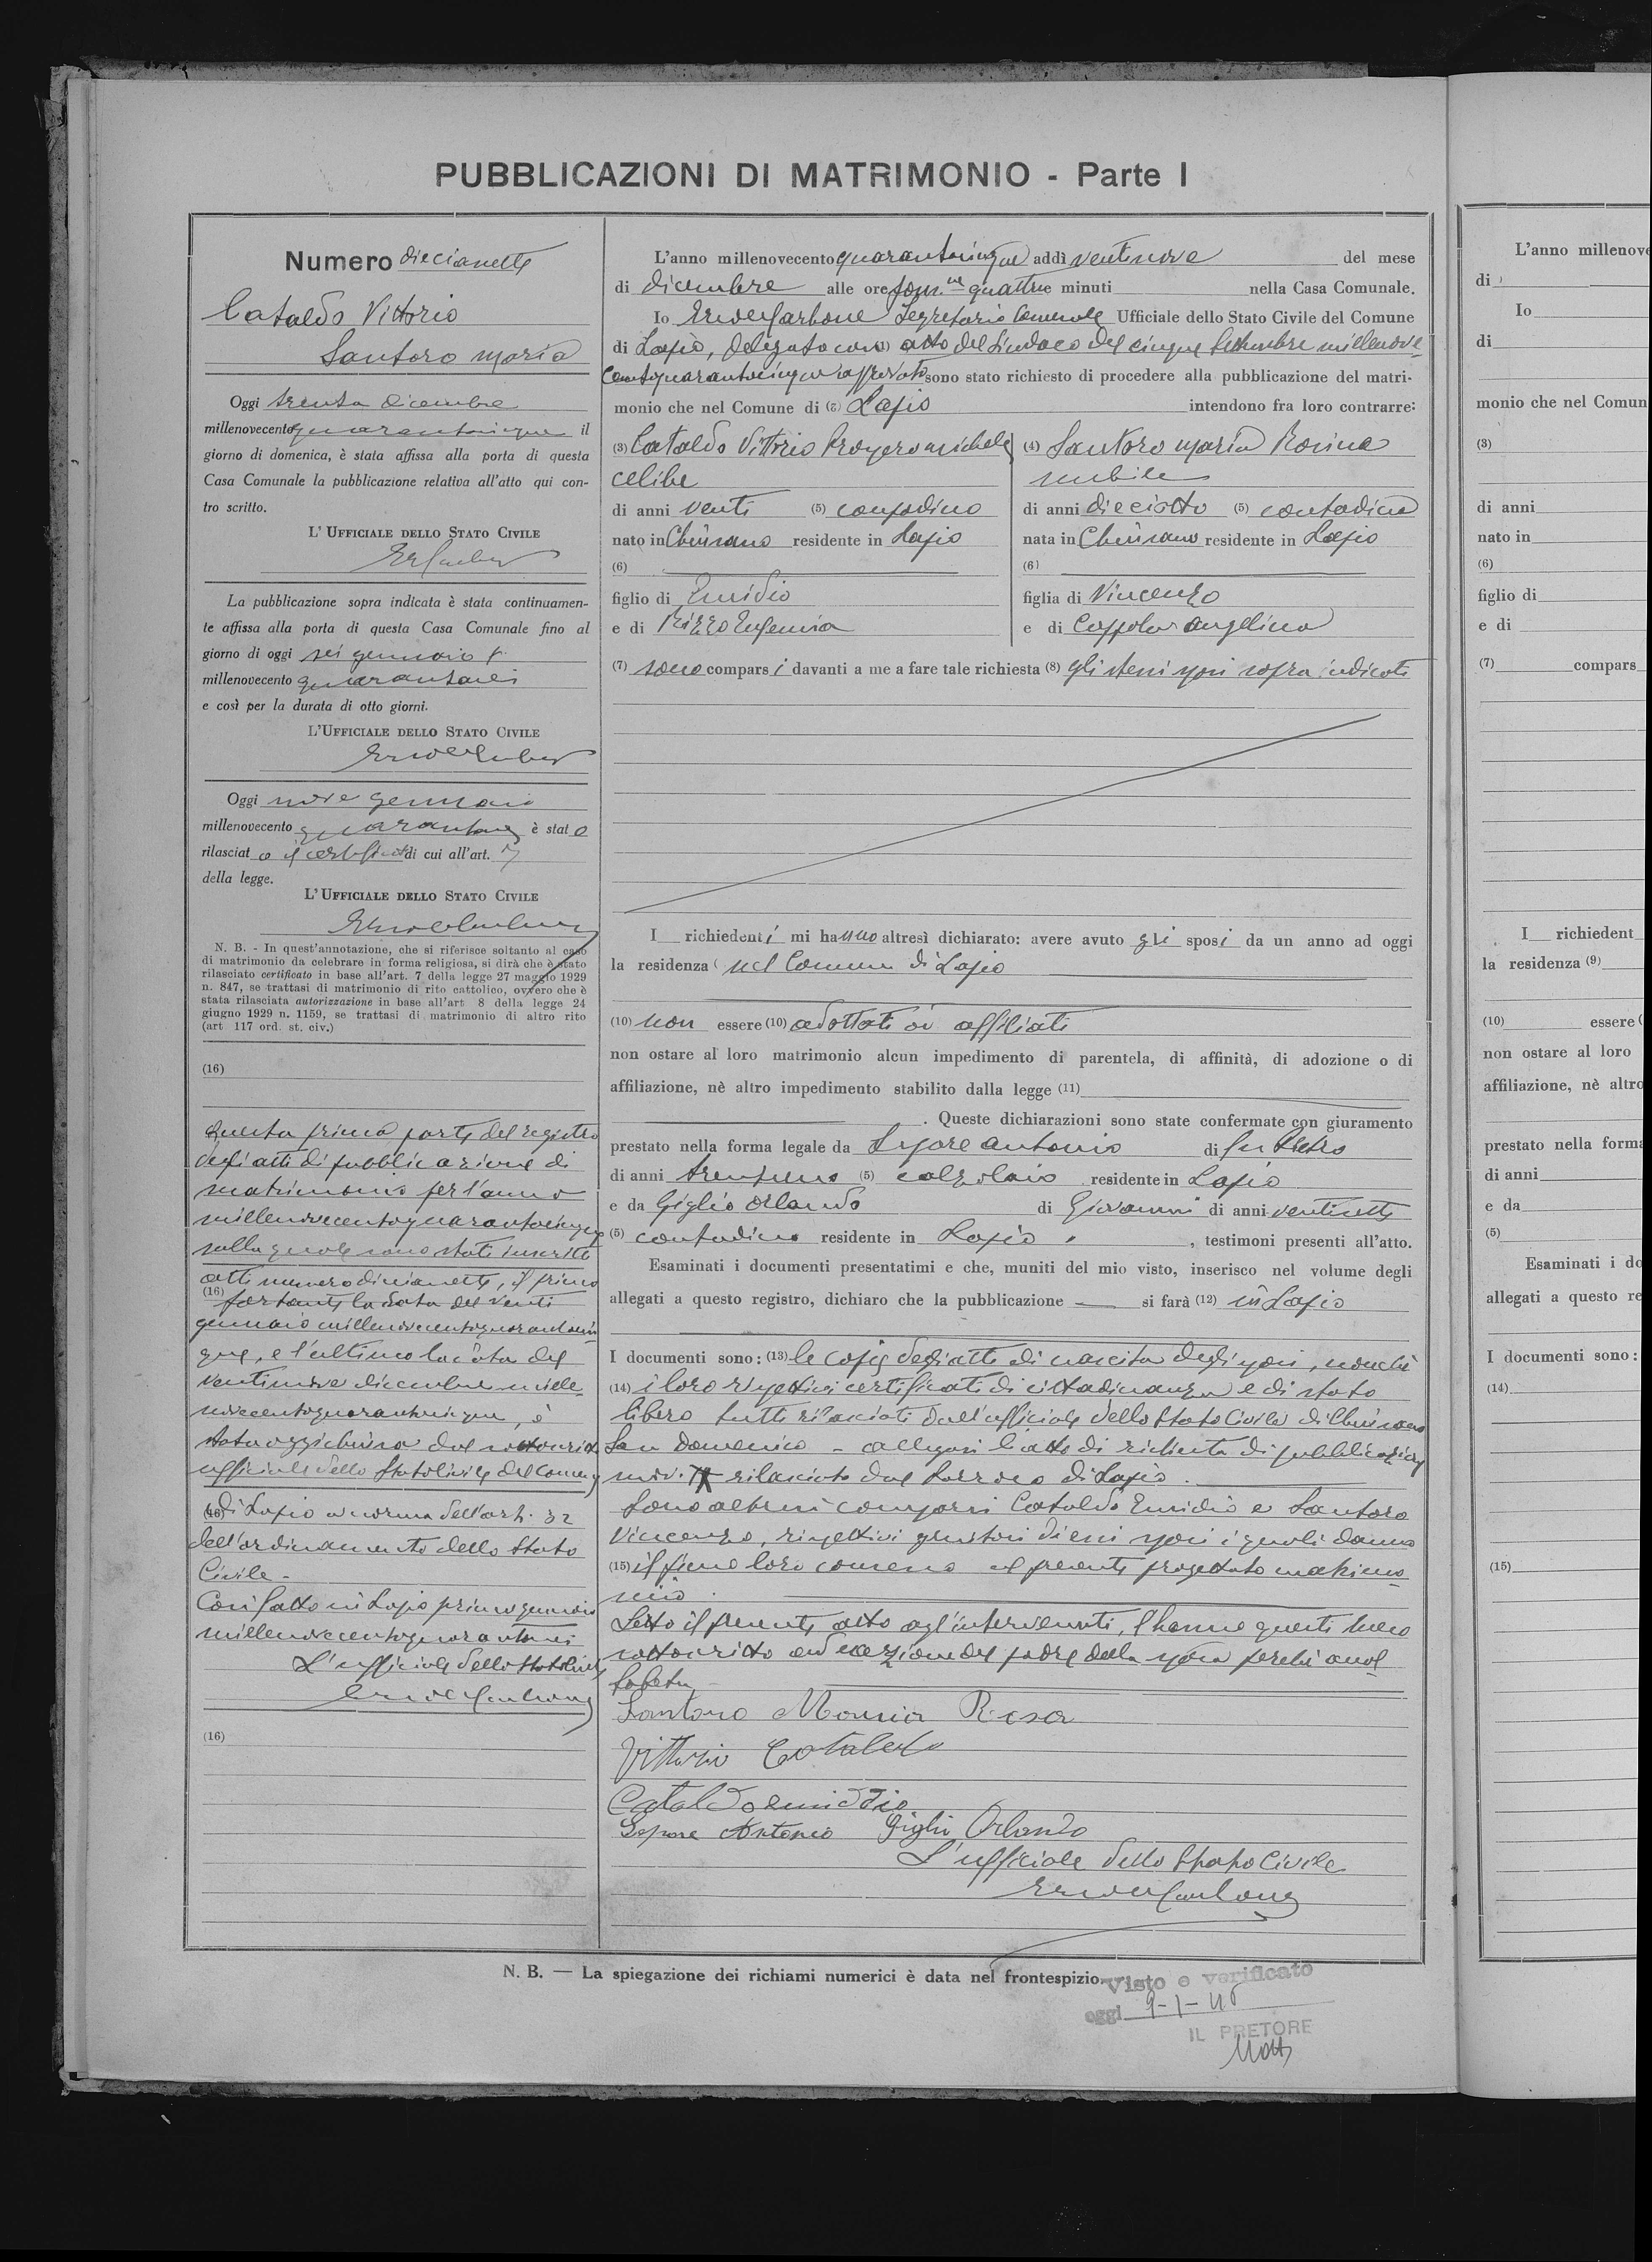 PUBBLICAZIONI DI MATRIMONIO - Parte I
Numero diecianette
Cataldo Vittorio
Santoro Maria
Oggi trenta dicembre
millenovecento quarantacinque il
giorno di domenica, è stata affissa alla porta di questa
Casa Comunale la pubblicazione relativa all'atto qui con-
tro scritto.
L'UFFICIALE DELLO STATO CIVILE
La pubblicazione sopra indicata è stata continuamen-
te affissa alla porta di questa Casa Comunale fino al
giorno di oggi sei gennaio
millenovecento quarantasei
e così per la durata di otto giorni.
L'UFFICIALE DELLO STATO CIVILE
Oggi nove gennaio
millenovecento quarantasei è stato
rilasciato il certificato di cui all'art. 7
della legge.
L'UFFICIALE DELLO STATO CIVILE
N. B. - In quest'annotazione, che si riferisce soltanto al caso
di matrimonio da celebrare in forma religiosa, si dirà che è stato
rilasciato certificato in base all'art. 7 della legge 27 maggio 1929
n. 847, se trattasi di matrimonio di rito cattolico, ovvero che è
stata rilasciata autorizzazione in base all'art 8 della legge 24
giugno 1929 n. 1159, se trattasi di matrimonio di altro rito
(art 117 ord. st. civ.)
(16)
Questa prima parte del registro
degli atti di pubblicazione di
matrimonio per l'anno
millenovecentoquarantacinque
sulla quale sono stati inscritti
atti numero diecianette, il primo
(16) portante la data del venti
gennaio millenovecentoquarantacin
que, e l'ultimo la data del
ventinove dicembre mille
novecentoquarantacinque, è
stata oggi chiusa dal sottoscritto
ufficiale dello Stato Civile del Comune
(16) di Lapio a norma dell'art. 32
dell'ordinamento dello Stato
Civile -
Così fatto in Lapio primo gennaio
millenovecentoquarantasei
L'ufficiale dello Stato Civile
(16)
L'anno millenovecento quarantacinque addì ventinove del mese
di dicembre alle ore pom.ne quattro e minuti nella Casa Comunale.
Io Carbone Segretario Comunale Ufficiale dello Stato Civile del Comune
di Lapio, delegato con atto del Sindaco del cinque Settembre millenove-
centoquarantacinque approvato sono stato richiesto di procedere alla pubblicazione del matri-
monio che nel Comune di Lapio intendono fra loro contrarre:
(3) Cataldo Vittorio Michele
celibe
di anni venti (5) contadino
nato in Chiusano residente in Lapio
(6)
figlio di Emidio
e di Rizzo Eugenia
(4) Santoro Maria Rosina
nubile
di anni dieciotto (5) contadina
nata in Chiusano residente in Lapio
(6)
figlia di Vincenzo
e di Coppola Angelina
(7) sono comparsi davanti a me a fare tale richiesta (8) gli stessi sposi sopra indicati
I richiedenti mi hanno altresì dichiarato: avere avuto gli sposi da un anno ad oggi
la residenza nel Comune di Lapio
(10) non essere (10) adottati od affiliati
non ostare al loro matrimonio alcun impedimento di parentela, di affinità, di adozione o di
affiliazione, nè altro impedimento stabilito dalla legge (11)
. Queste dichiarazioni sono state confermate con giuramento
prestato nella forma legale da Lepore Antonio di fu Pietro
di anni trentuno (5) calzolaio residente in Lapio
e da Giglio Orlando di Giovanni di anni ventisette
(5) contadino residente in Lapio , testimoni presenti all'atto.
Esaminati i documenti presentatimi e che, muniti del mio visto, inserisco nel volume degli
allegati a questo registro, dichiaro che la pubblicazione si farà (12) in Lapio
I documenti sono: (13) le copie degli atti di nascita degli sposi, nonchè
(14) i loro rispettivi certificati di cittadinanza e di stato
libero tutti rilasciati dall'ufficiale dello Stato Civile di Chiusano
San Domenico - allegasi l'atto di richiesta di pubblicazione
rilasciato dal Parroco di Lapio.
Sono altresì comparsi Cataldo Emidio e Santoro
Vincenzo, rispettivi genitori di essi sposi i quali danno
(15) il pieno loro consenso al presente progettato matrimo
nio.
Letto il presente atto agl'intervenuti, l'hanno questi meco
sottoscritto ad eccezione del padre della sposa perchè anal
fabeta -
Santoro Maria Rosa
Vittorio Cataldo
Cataldo Emiddio
Lepore Antonio Giglio Orlando
L'ufficiale dello Stato Civile
N. B. — La spiegazione dei richiami numerici è data nel frontespizio.
Visto e verificato
oggi 9-1-46
IL PRETORE
L'anno millenove
di
Io
di
monio che nel Comun
(3)
di anni
nato in
(6)
figlio di
e di
(7) compars
I richiedent
la residenza (9)
(10) essere
non ostare al loro
affiliazione, nè altro
prestato nella forma
di anni
e da
(5)
Esaminati i do
allegati a questo re
I documenti sono:
(14)
(15)